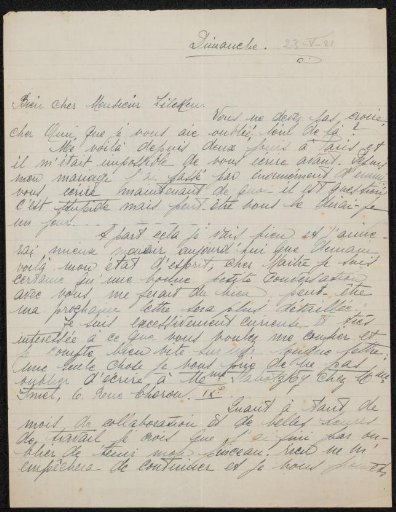 Dimanche. 23-V-21
Bien cher Monsieur Zilcken.
Vous ne devez pas croire,
cher Ami, que je vous aie oublié, loin de là!
Me voilà depuis deux jours à Paris et
il m'était impossible de vous écrire avant.
mon mariage
vous écrire maintenant de quoi il est question
c'est stupide mais peut-être vous le dirai-je
un jour...
A part cela je vais bien et j'aime-
rai mieux mourir aujourd'hui que demain
voilà mon état d'esprit, cher Maître je suis
certaine qu'une bonne petite conversation
avec vous me ferait du bien, peut-être
ma prochaine lettre sera plus détaillée.
Je suis excessivement curieuse & très
intéressée à ce que vous voulez me confier et
je compte bien vite sur une longue lettre,
une seule chose je vous prie de ne pas
oublier d'écrire à Me chez Me
6. rue Chéron. IX
Quant à tant de
mois de collaboration et de belles
de travail je crois que j'ai fini par ou-
blier de tenir mon pinceau. rien ne m'
empêchera de continuer et je vous